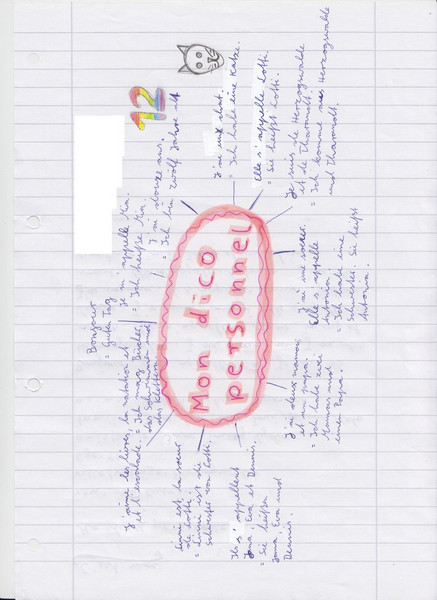 Bonjour
= Guten Tag
J'aime les livres, la natation et
et l'escalade. = Ich mag Bücher,
das Schwimmen und
das Klettern.
Je m'appelle
= Ich heiße
J'ai douze ans.
= Ich bin zwölf Jahre alt
12
Mon dico
personnel
J'ai une chat.
= Ich habe eine Katze.
Elle s'appelle Lotti.
= Sie heißt Lotti.
Je suis de Herzogswalde
et de Tharandt.
= Ich komme aus Herzogswalde
und Tharandt.
J'ai une soeur.
Elle s'appelle
Antonia.
= Ich habe eine
Schwester. Sie heißt
Antonia.
J'ai deux maman
et un papa.
= Ich habe zwei
Mamas und
einen Papa.
Ils s'appellent
Jana, Eva et Dennis.
= Sie heißen
Jana, Eva und
Dennis.
est la soeur
de Lotti.
= ist die
Schwester von Lotti.